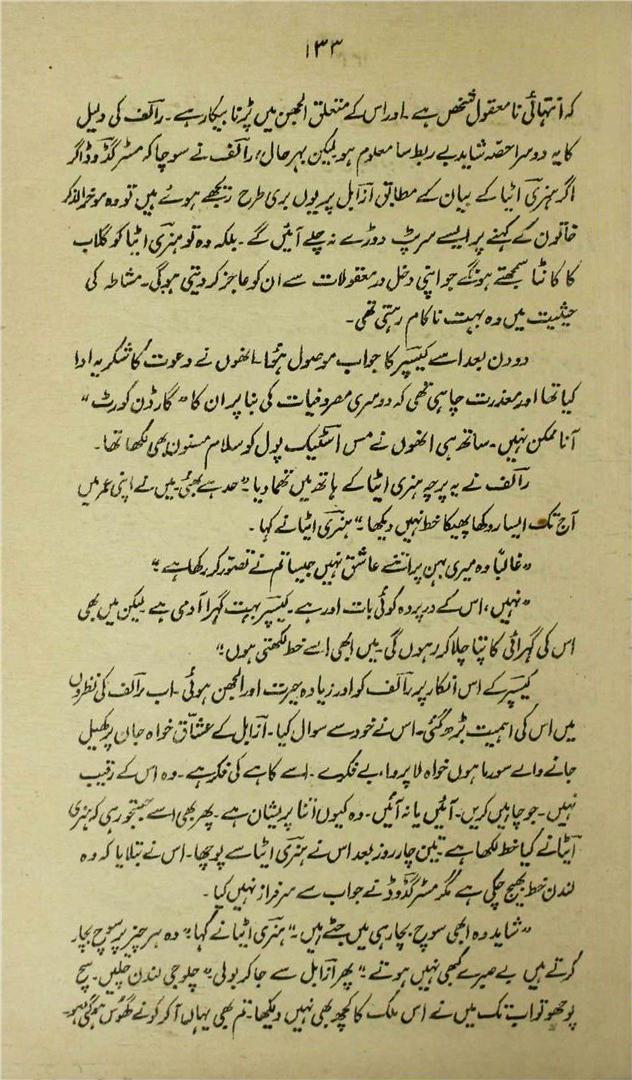 ۱۳۳
کہ انتہائی نامعقول شخص ہے۔ اور اس کے متعلق الجھن میں پڑنا بیکار ہے۔ رالف کی دلیل
کا یہ دوسرا حصہ شاید بے ربط سا معلوم ہو لیکن بہرحال، رالف نے سوچا کہ مسٹر گڈوڈ اگر
اگر ہنری اٹیا کے بیان کے مطابق آزابل پر یوں بری طرح ریجھے ہوئے ہیں تو وہ موخرالذکر
خاتون کے کہنے پر ایسے سرپٹ دوڑے نہ چلے آئیں گے۔ بلکہ وہ تو ہنری اٹیا کو گلاب
کا کانٹا سمجھتے ہونگے جو اپنی دخل در معقولات سے ان کو عاجز کر دیتی ہوگی۔ مشاطہ کی
حیثیت میں وہ بہت ناکام رہتی تھی۔
دو دن بعد اسے کیسپر کا جواب موصول ہوا۔ انھوں نے دعوت کا شکریہ ادا
کیا تھا اور معذرت چاہی تھی کہ دوسری مصروفیات کی بنا پر ان کا "گارڈن کورٹ"
آنا ممکن نہیں۔ ساتھ ہی انھوں نے مس اسٹیک پول کو سلام مسنون بھی لکھا تھا۔
رالف نے یہ پرچہ ہنری اٹیا کے ہاتھ میں تھما دیا۔ "حد ہے بھئی۔ میں نے اپنی عمر میں
آج تک ایسا روکھا پھیکا خط نہیں دیکھا۔" ہنری اٹیا نے کہا۔
"غالباً وہ میری بہن پر اتنے عاشق نہیں جیسا تم نے تصور کر رکھا ہے۔"
"نہیں، اس کے در پردہ کوئی بات اور ہے۔ کیسپر بہت گہرا آدمی ہے۔ لیکن میں بھی
اس کی گہرائی کا پتا چلا کر رہوں گی۔ میں ابھی اسے خط لکھتی ہوں۔"
کیسپر کے اس انکار پر رالف کو اور زیادہ حیرت اور الجھن ہوئی۔ اب رالف کی نظروں
میں اس کی اہمیت بڑھ گئی۔ اس نے خود سے سوال کیا۔ آزابل کے عشاق خواہ جان پر کھیل
جانے والے سورما ہوں خواہ لا پروا، بے فکرے۔ اسے کاہے کی فکر ہے۔ وہ اس کے رقیب
نہیں۔ جو چاہیں کریں۔ آئیں یا نہ آئیں۔ وہ کیوں اتنا پریشان ہے۔ پھر بھی اسے جستجو رہی کہ ہنری
آیٹا نے کیا خط لکھا ہے۔ تین چار روز بعد اس نے ہنری اٹیا سے پوچھا۔ اس نے بتلایا کہ وہ
لندن خط بھیج چکی ہے مگر مسٹر گڈوڈ نے جواب سے سرفراز نہیں کیا۔
"شاید وہ ابھی سوچ بچار ہی میں جٹے ہیں۔" ہنری اٹیا نے کہا۔ "وہ ہر چیز پر سوچ بچار
کرتے ہیں بے صبرے کبھی نہیں ہوتے۔" پھر آزابل سے جا کر بولی "چلو جی لندن چلیں۔ سچ
پوچھو تو اب تک میں نے اس ملک کا کچھ بھی نہیں دیکھا۔ تم بھی یہاں آ کر کونے گھوس